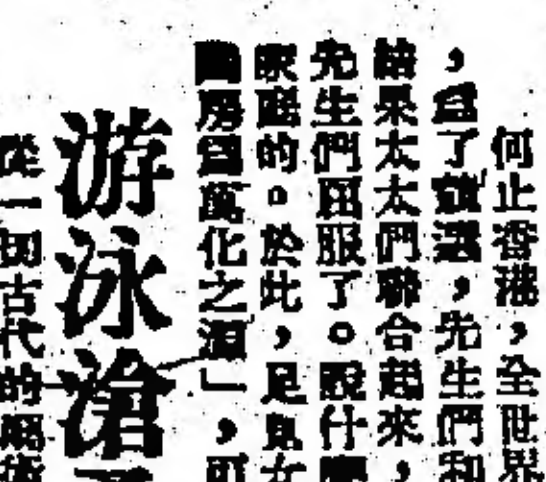 何止香港，全世界
，爲了競選，先生們和
結果太太們聯合起來，
先生們屈服了。說什麼
家庭的。於此，足見女
房爲萬化之源」，可
游泳滄
從一切古代的